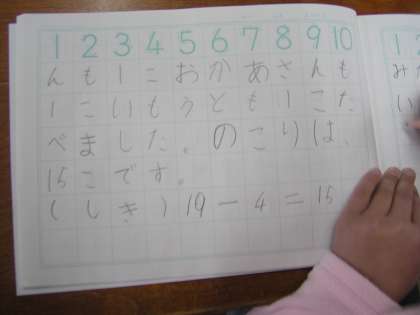 1 2 3 4 5 6 7 8 9 10
んも1こおかあさんも
1こいもうとも1こた
べました。のこりは、
15こです。
(しき)19-4=15